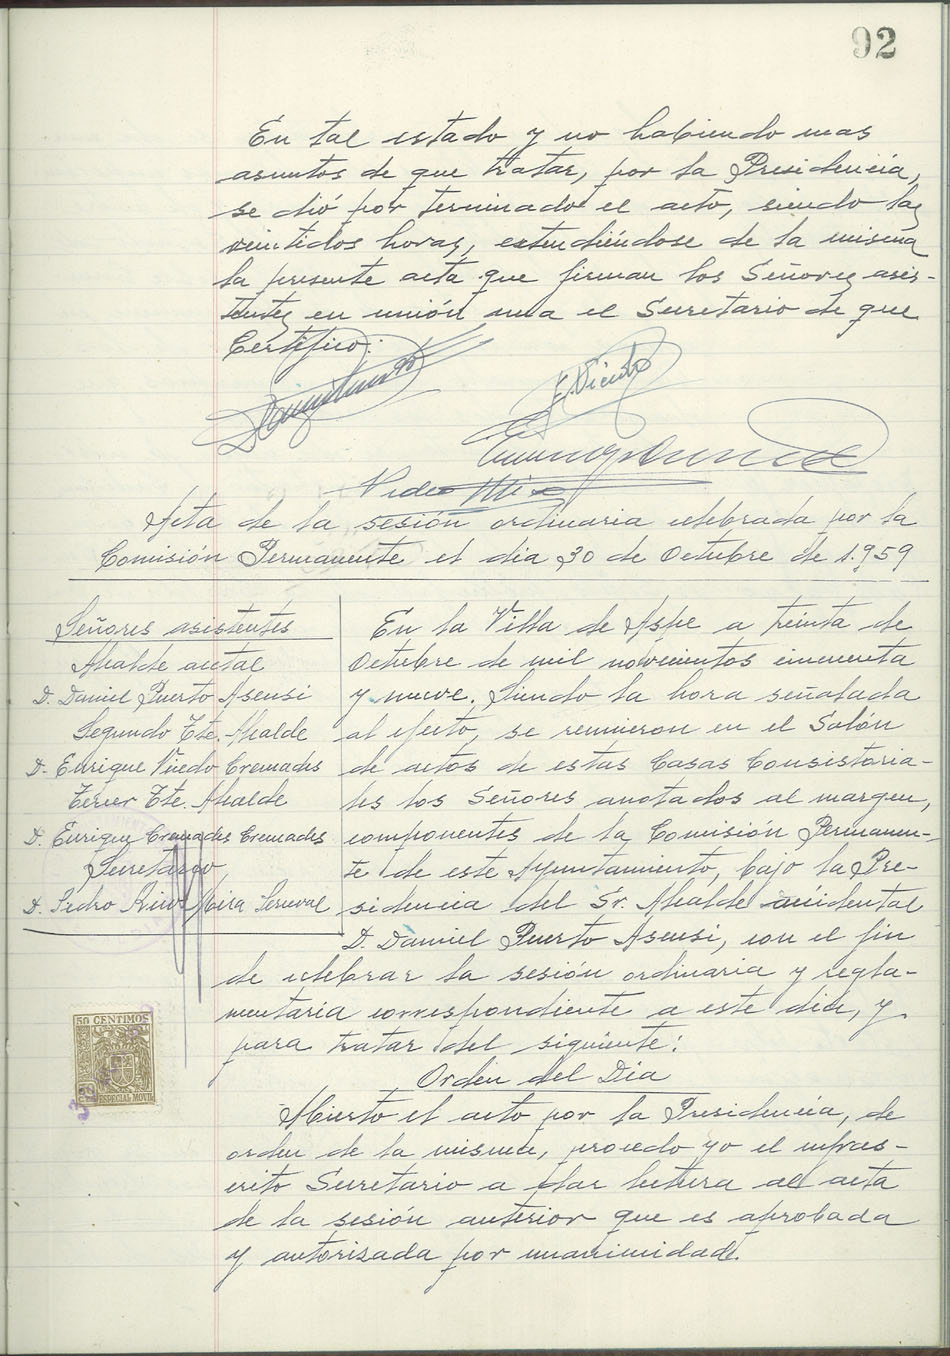 92
En tal estado y no habiendo mas
asuntos de que tratar, por la Presidencia,
se dió por terminado el acto, siendo las
veintidos horas, extendiéndose de la misma
la presente acta que firman los Señores asis-
tentes en unión mia el Secretario de que
Certifico:
Acta de la sesión ordinaria celebrada por la
Comisión Permanente el dia 30 de Octubre de 1.959
Señores asistentes
Alcalde acctal
D. Daniel Puerto Asensi
Segundo Tte. Alcalde
D. Enrique Cremades
Tercer Tte. Alcalde
D. Enrique Cremades Cremades
Secretario
D. Pedro Mira
En la Villa de Aspe a treinta de
Octubre de mil novecientos cincuenta
y nueve. Siendo la hora señalada
al efecto, se reunieron en el Salón
de actos de estas Casas Consistoria-
les los Señores anotados al margen,
componentes de la Comisión Permanen-
te de este Ayuntamiento, bajo la Pre-
sidencia del Sr. Alcalde accidental
D. Daniel Puerto Asensi, con el fin
de celebrar la sesión ordinaria y regla-
mentaria correspondiente a este dia, y
para tratar del siguiente:
Orden del Dia
Abierto el acto por la Presidencia, de
orden de la misma, procedo yo el infras-
crito Secretario a dar lectura al acta
de la sesión anterior que es aprobada
y autorizada por unanimidad.
50 CENTIMOS
ESPECIAL MOVIL